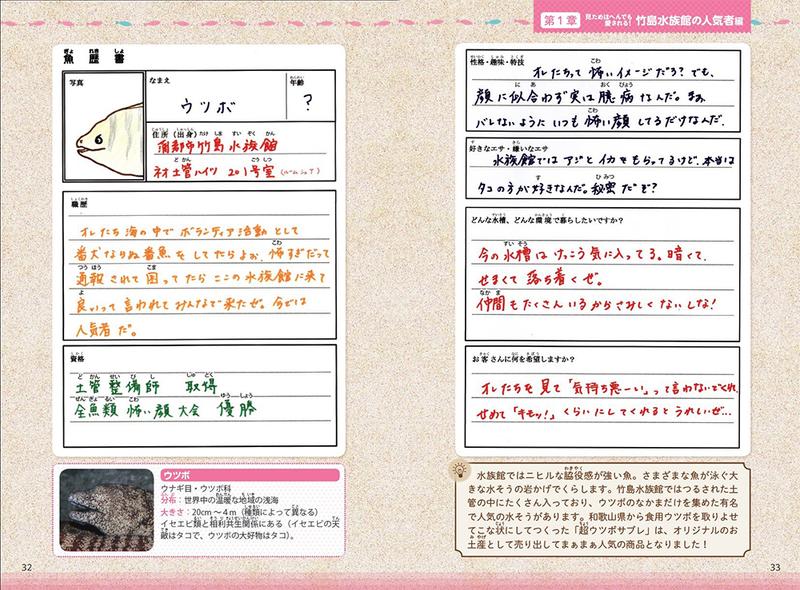 第1章 見ためはへんでも愛される! 竹島水族館の人気者編
魚歴書
写真
なまえ
ウツボ
年齢
?
住所(出身)
蒲郡市竹島水族館
ネオ土管ハイツ 201号室(ルームシェア)
職歴
オレたち海の中でボランティア活動として
番犬ならぬ番魚をしてたらよぉ、怖すぎだって
通報されて困ってたらここの水族館に来て
良いって言われてみんなで来たぜ。今では
人気者だ。
資格
土管整備師 取得
全魚類怖い顔大会 優勝
ウツボ
ウナギ目・ウツボ科
分布:世界中の温暖な地域の浅海
大きさ:20cm〜4m(種類によって異なる)
イセエビ類と相利共生関係にある(イセエビの天
敵はタコで、ウツボの大好物はタコ)。
32
性格・趣味・特技
オレたちって怖いイメージだろ?でも、
顔に似合わず実は臆病なんだ。まぁ
バレないようにいつも怖い顔してるだけなんだ。
好きなエサ・嫌いなエサ
水族館ではアジとイカをもらってるけど、本当は
タコの方が好きなんだ。秘密だぞ?
どんな水槽、どんな環境で暮らしたいですか?
今の水槽はけっこう気に入ってる。暗くて、
せまくて落ち着くぜ。
仲間もたくさんいるからさみしくないしな!
お客さんに何を希望しますか?
オレたちを見て「気持ち悪ーい」って言わないでくれ
せめて「キモッ!」くらいにしてくれるとうれしいぜ…
水族館ではニヒルな脇役感が強い魚。さまざまな魚が泳ぐ大
きな水そうの岩かげでくらします。竹島水族館ではつるされた土
管の中にたくさん入っており、ウツボのなかまだけを集めた有名
で人気の水そうがあります。和歌山県から食用ウツボを取りよせ
てこな状にしてつくった「超ウツボサブレ」は、オリジナルのお
土産として売り出してまぁまぁ人気の商品となりました!
33